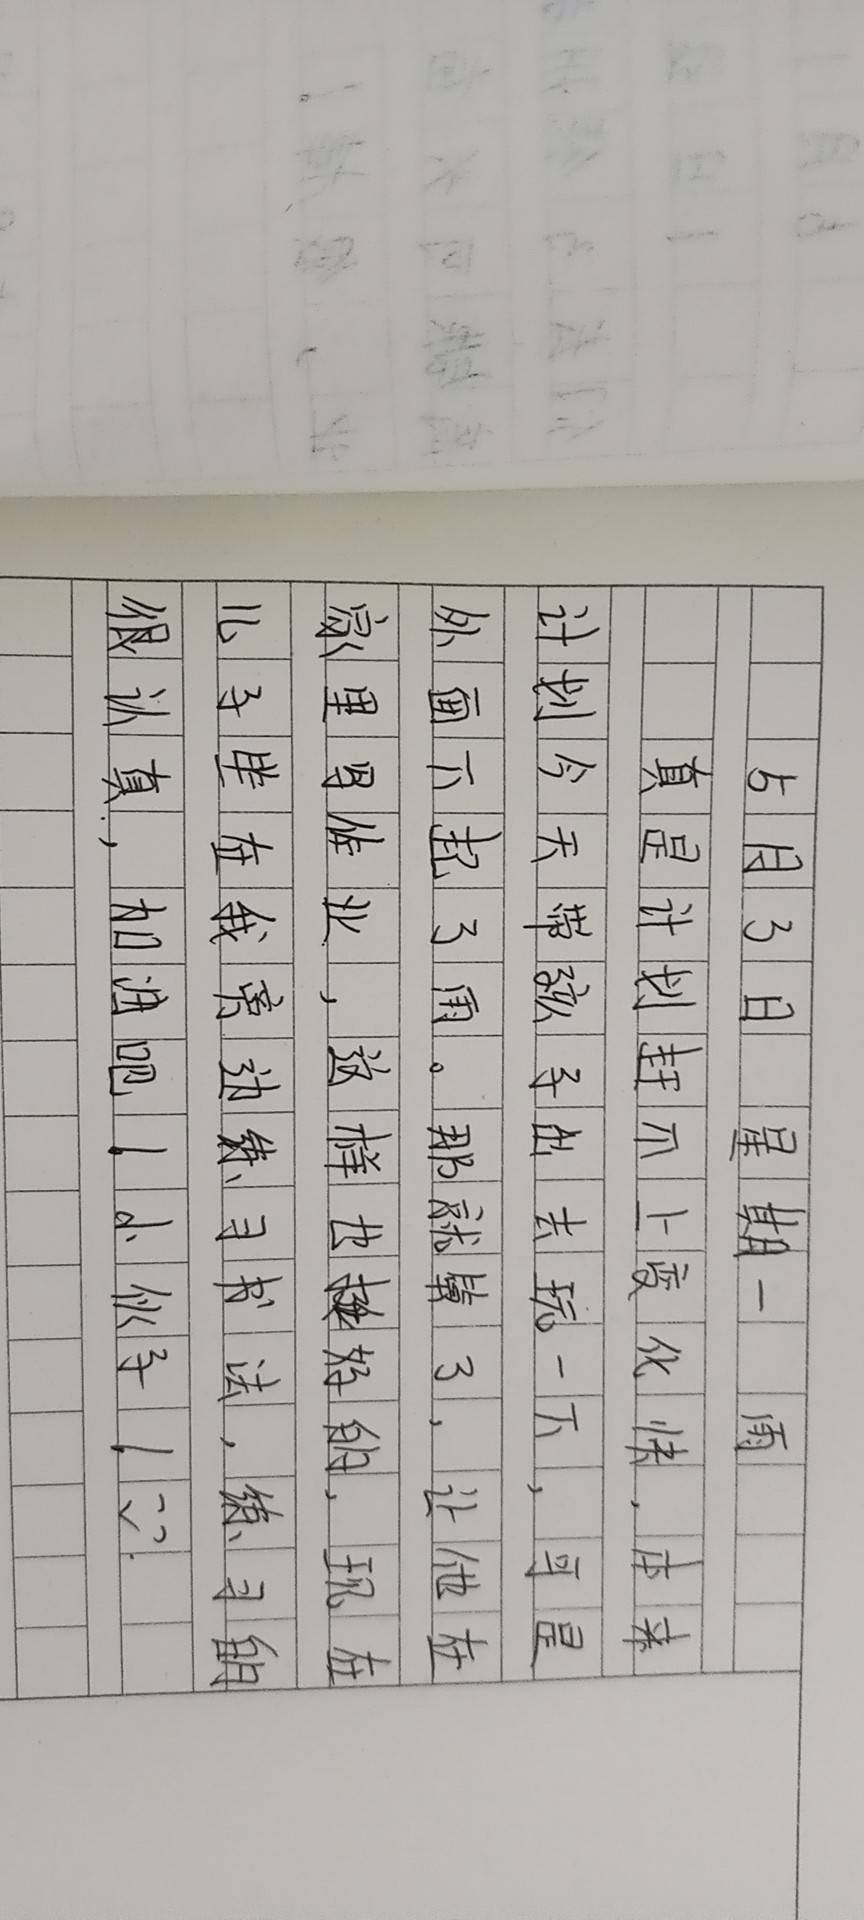 5月3日 星期一 雨
真是计划赶不上变化快，本来
计划今天带孩子出去玩一下，可是
外面下起了雨。那就算了，让他在
家里写作业，这样也挺好的，现在
儿子坐在我旁边练习书法，练习的
很认真，加油吧！小伙子！